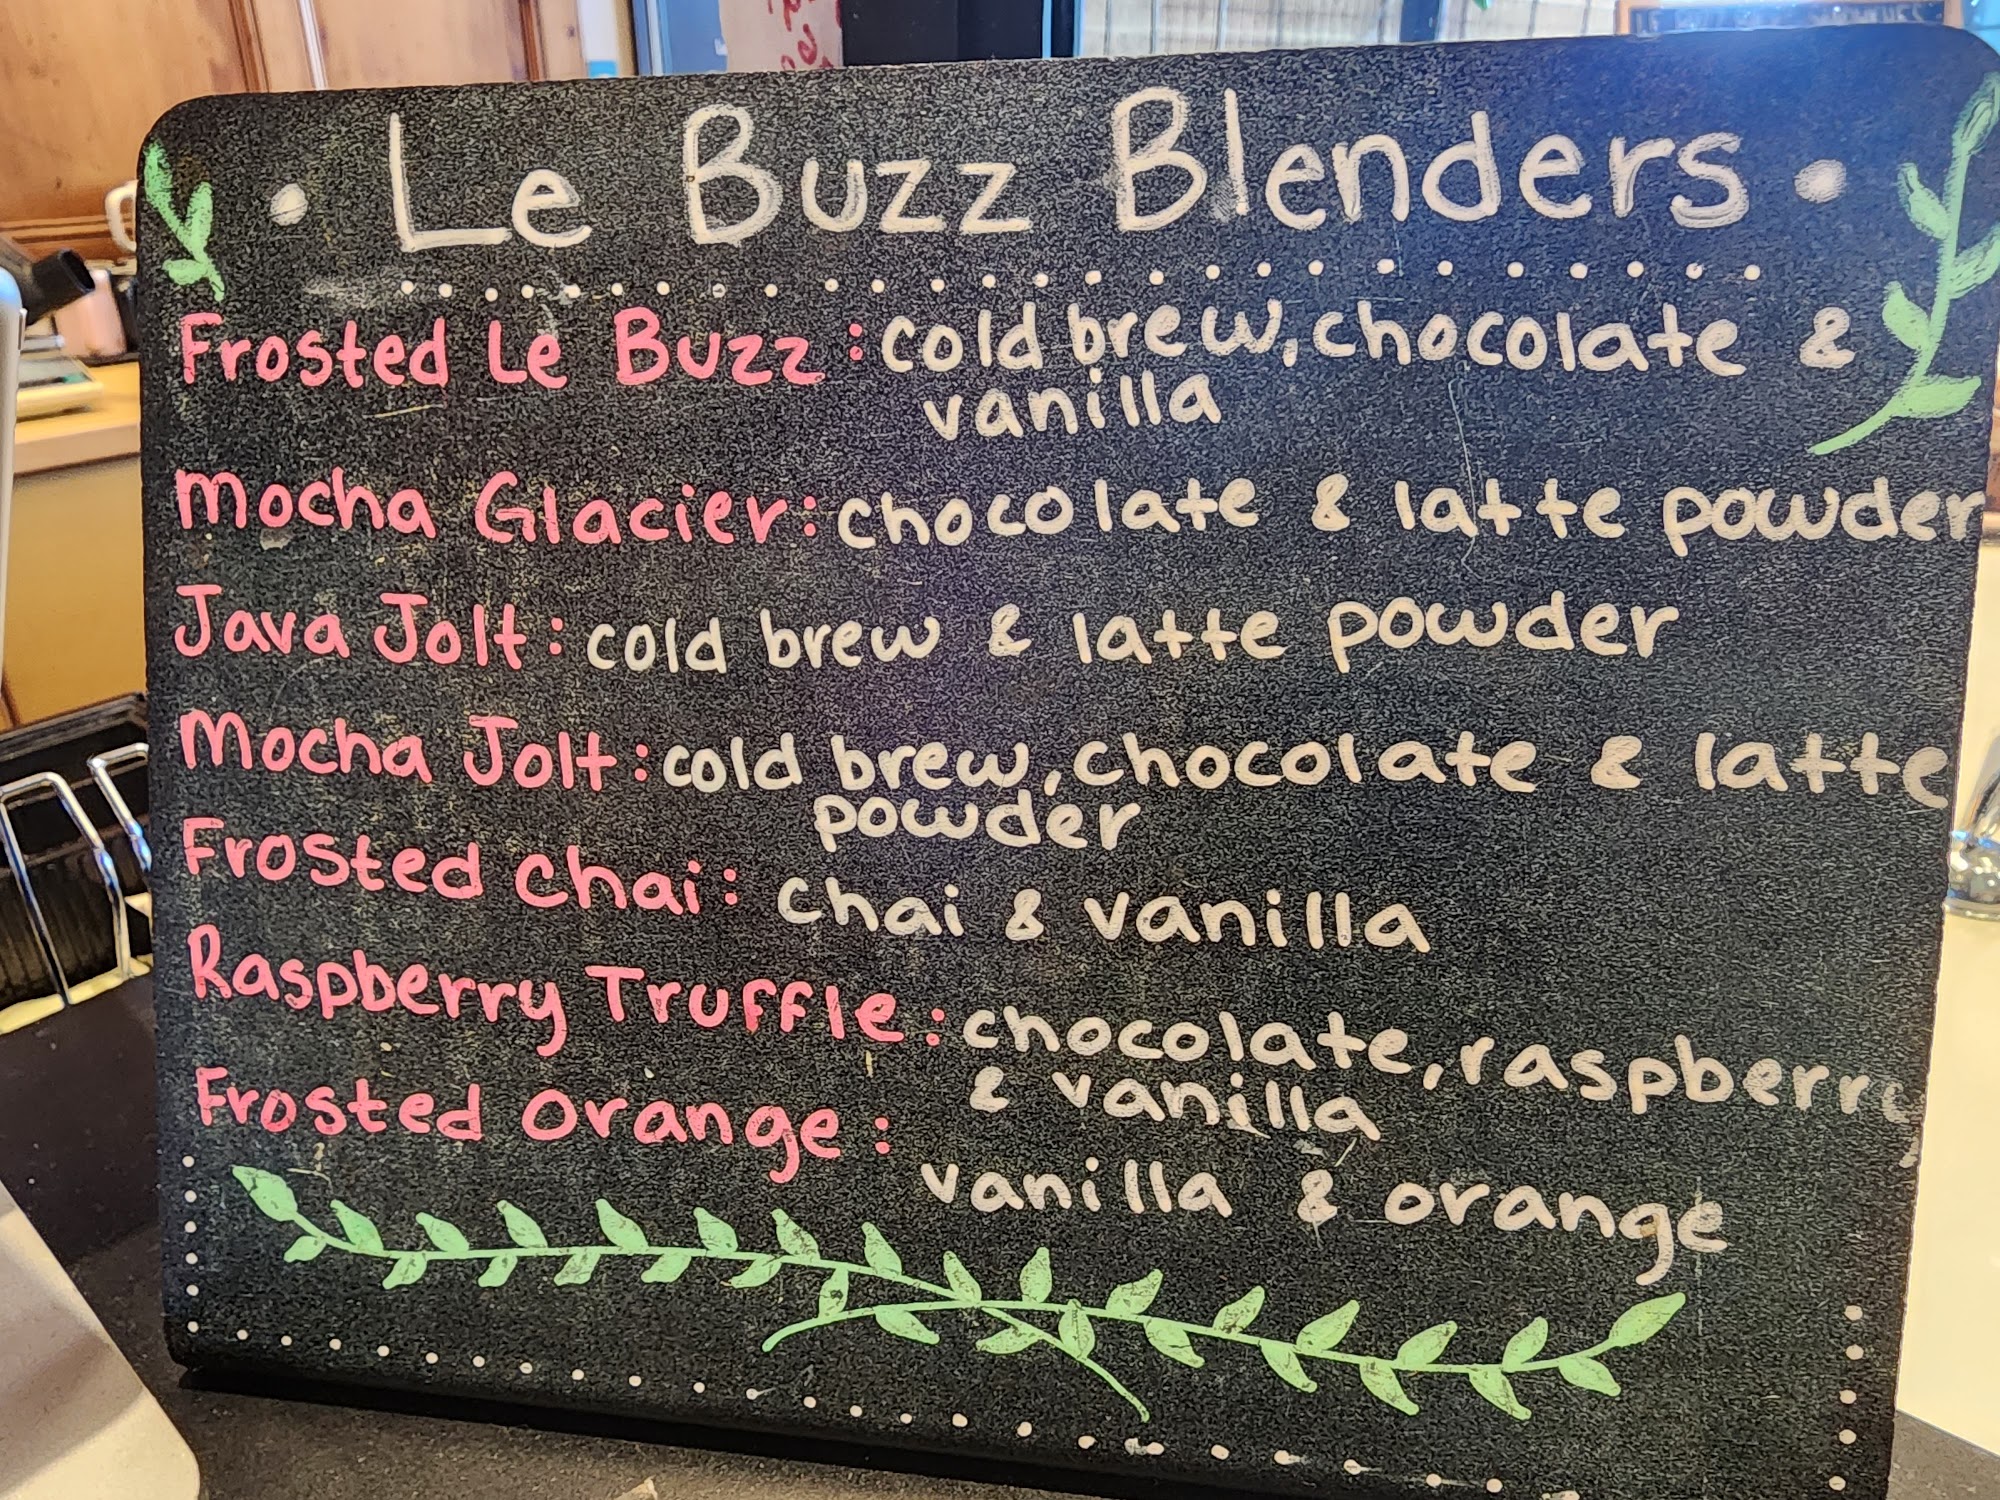 • Le Buzz Blenders •
Frosted Le Buzz : cold brew, chocolate &
vanilla
Mocha Glacier: chocolate & latte powder
Java Jolt: cold brew & latte powder
Mocha Jolt: cold brew, chocolate & latte
powder
Frosted Chai: chai & vanilla
Raspberry Truffle: chocolate, raspberry
& vanilla
Frosted Orange: vanilla & orange